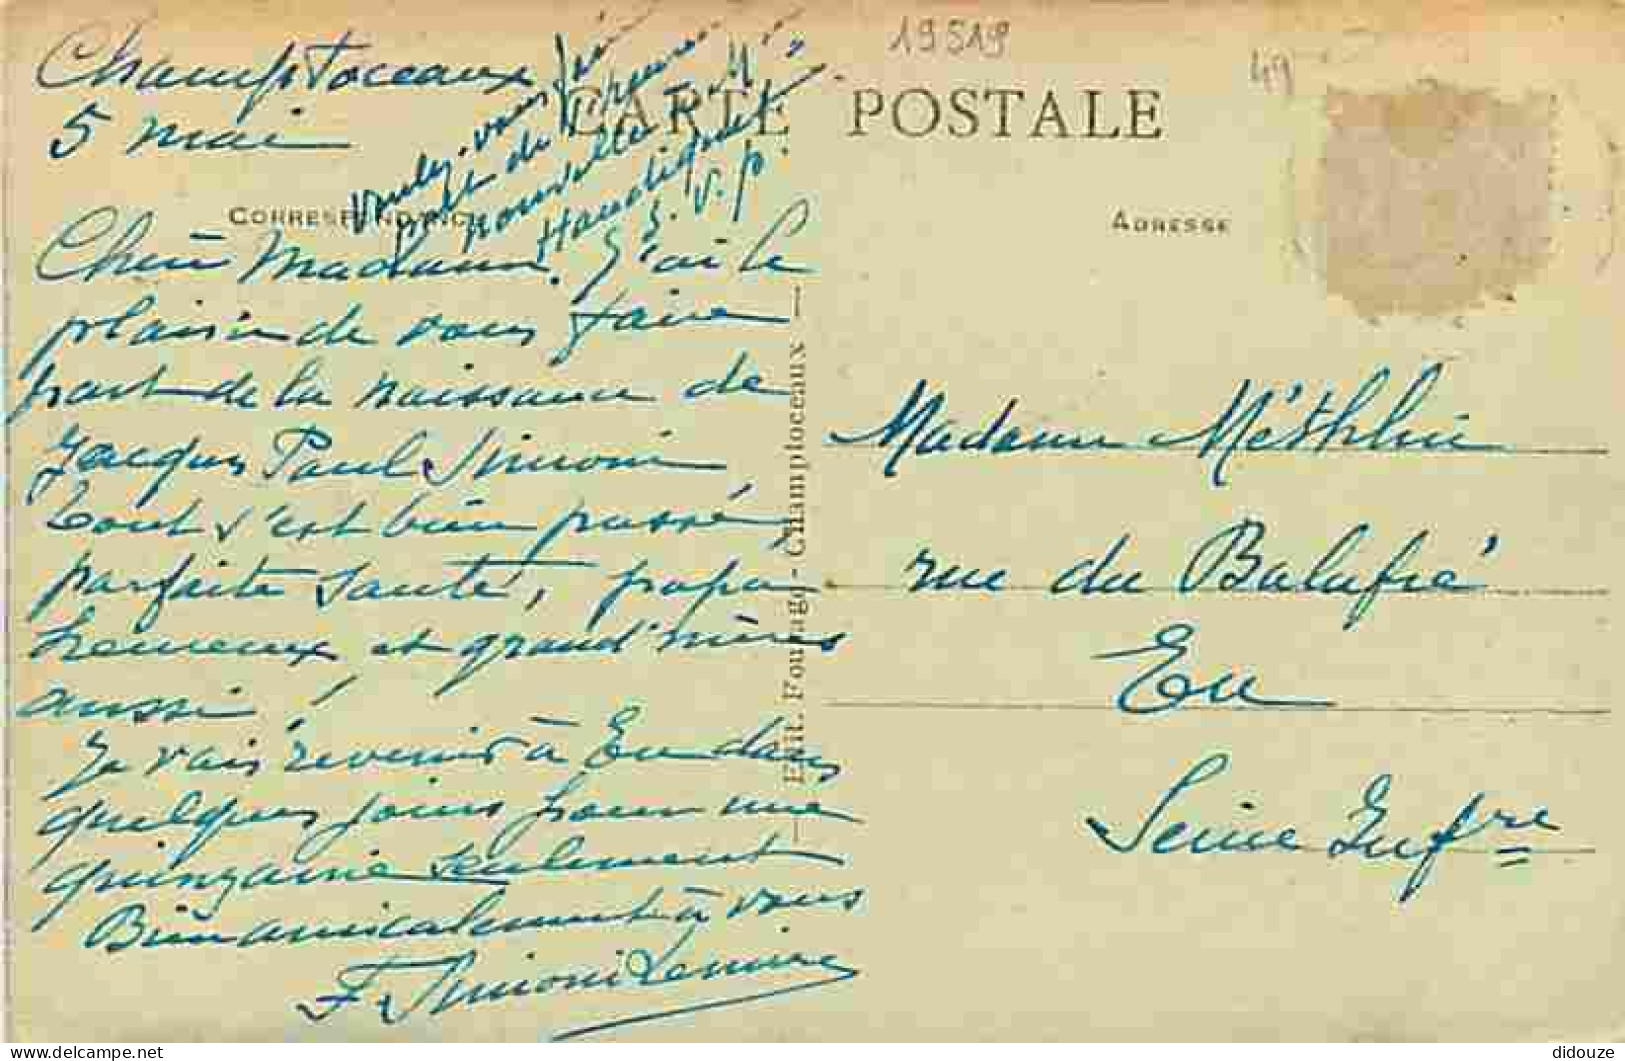 19519
49
CARTE POSTALE
CORRESPONDANCE
ADRESSE
Champtoceaux
5 mai
Voulez-vous faire
part de
nouvelle à M
Handiquet
S. V. p.
Chère Madame. J'ai le
plaisir de vous faire
part de la naissance de
Jacques Paul Simoni
tout s'est bien passé,
parfaite santé, papa
heureux et grand'mères
aussi!
Je vais revenir à Eu dans
quelques jours pour une
quinzaine seulement
Bien amicalement à vous
F. Simoni Lemire
Edit. Fourage - Champtoceaux
Madame
rue du Balafré
Eu
Seine Infre
didouze
delcampe.net